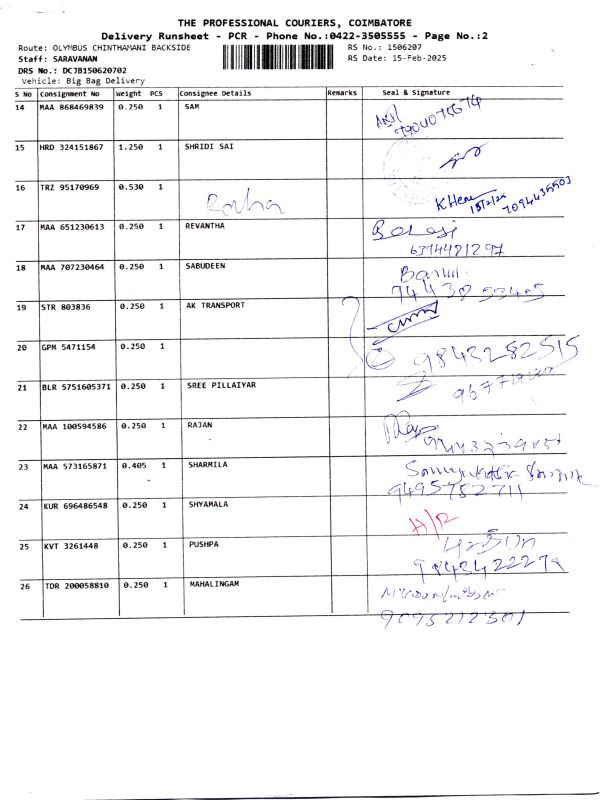 THE PROFESSIONAL COURIERS, COIMBATORE
Delivery Runsheet - PCR - Phone No.:0422-3505555 - Page No.:2
Route: OLYMBUS CHINTHAMANI BACKSIDE
RS No.: 1506207
Staff: SARAVANAN
RS Date: 15-Feb-2025
DRS No.: DCJB150620702
Vehicle: Big Bag Delivery
S No Consignment No Weight PCS Consignee Details Remarks Seal & Signature
14 MAA 868469839 0.250 1 SAM
15 HRD 324151867 1.250 1 SHRIDI SAI
16 TRZ 95170969 0.530 1
7094435503
17 MAA 651230613 0.250 1 REVANTHA
6374421297
18 MAA 707230464 0.250 1 SABUDEEN
19 STR 803836 0.250 1 AK TRANSPORT
20 GPM 5471154 0.250 1
9843282515
21 BLR 5751605371 0.250 1 SREE PILLAIYAR
22 MAA 100594586 0.250 1 RAJAN
23 MAA 573165871 0.405 1 SHARMILA
9495752711
24 KUR 696486548 0.250 1 SHYAMALA
25 KVT 3261448 0.250 1 PUSHPA
9843422279
26 TDR 200058810 0.250 1 MAHALINGAM
9095212301